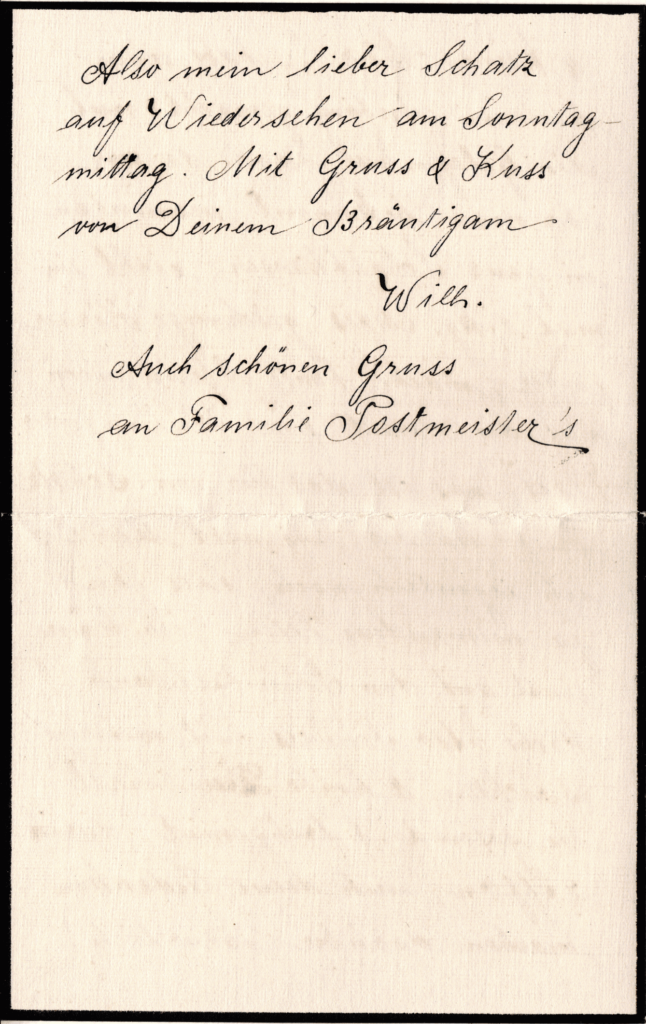 Also mein lieber Schatz
auf Wiedersehen am Sonntag-
mittag. Mit Gruss & Kuss
von Deinem Bräutigam
Wilh.
Auch schönen Gruss
an Familie Postmeister's